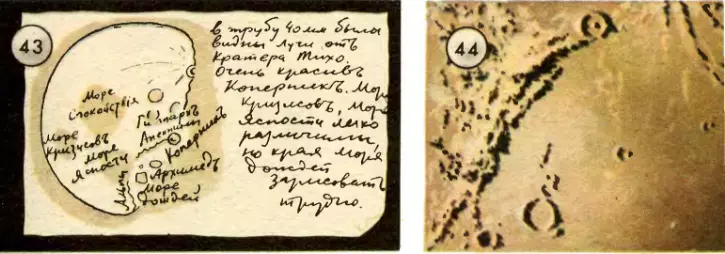 43
в трубу 40мм были
видны лучи отъ
кратера Тихо.
Очень красивъ
Коперникъ. Море
Кризисовъ, Море
Ясности легко
различимы,
но края Моря
Дождей
зарисовать
трудно.
Море
Спокойствія
Гиппархъ
Апеннины
Море
Кризисовъ
Море
Ясности
Коперникъ
Альпы
Архимедъ
Море
Дождей
44